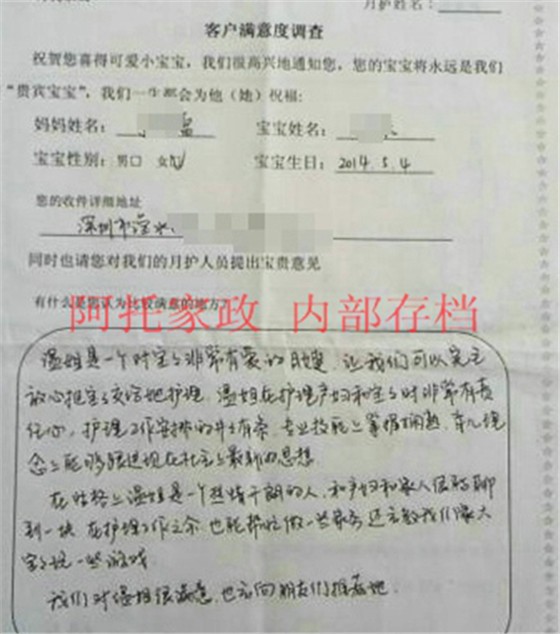 月护姓名：
客户满意度调查
祝贺您喜得可爱小宝宝，我们很高兴地通知您，您的宝宝将永远是我们
“贵宾宝宝”，我们一生都会为他（她）祝福：
妈妈姓名： 宝宝姓名：
宝宝性别：男□ 女☑ 宝宝生日：2014.5.4
您的收件详细地址
深圳市
同时也请您对我们的月护人员提出宝贵意见
有什么是您认为比较满意的地方？
阿托家政 内部存档
温姐是一个对宝宝非常有爱的月嫂，让我们可以完全
放心把宝宝交给她护理，温姐在护理产妇和宝宝时非常有责
任心，护理工作安排的井井有条，专业技能上掌握娴熟，育儿理
念上能够跟进现在社会上最新的思想
在性格上温姐是一个热情开朗的人，和产妇和家人很能聊
到一块 在护理工作之余 也能帮忙做一些家务 还教我们跟大
宝玩一些游戏
我们对温姐很满意，也会向朋友们推荐她